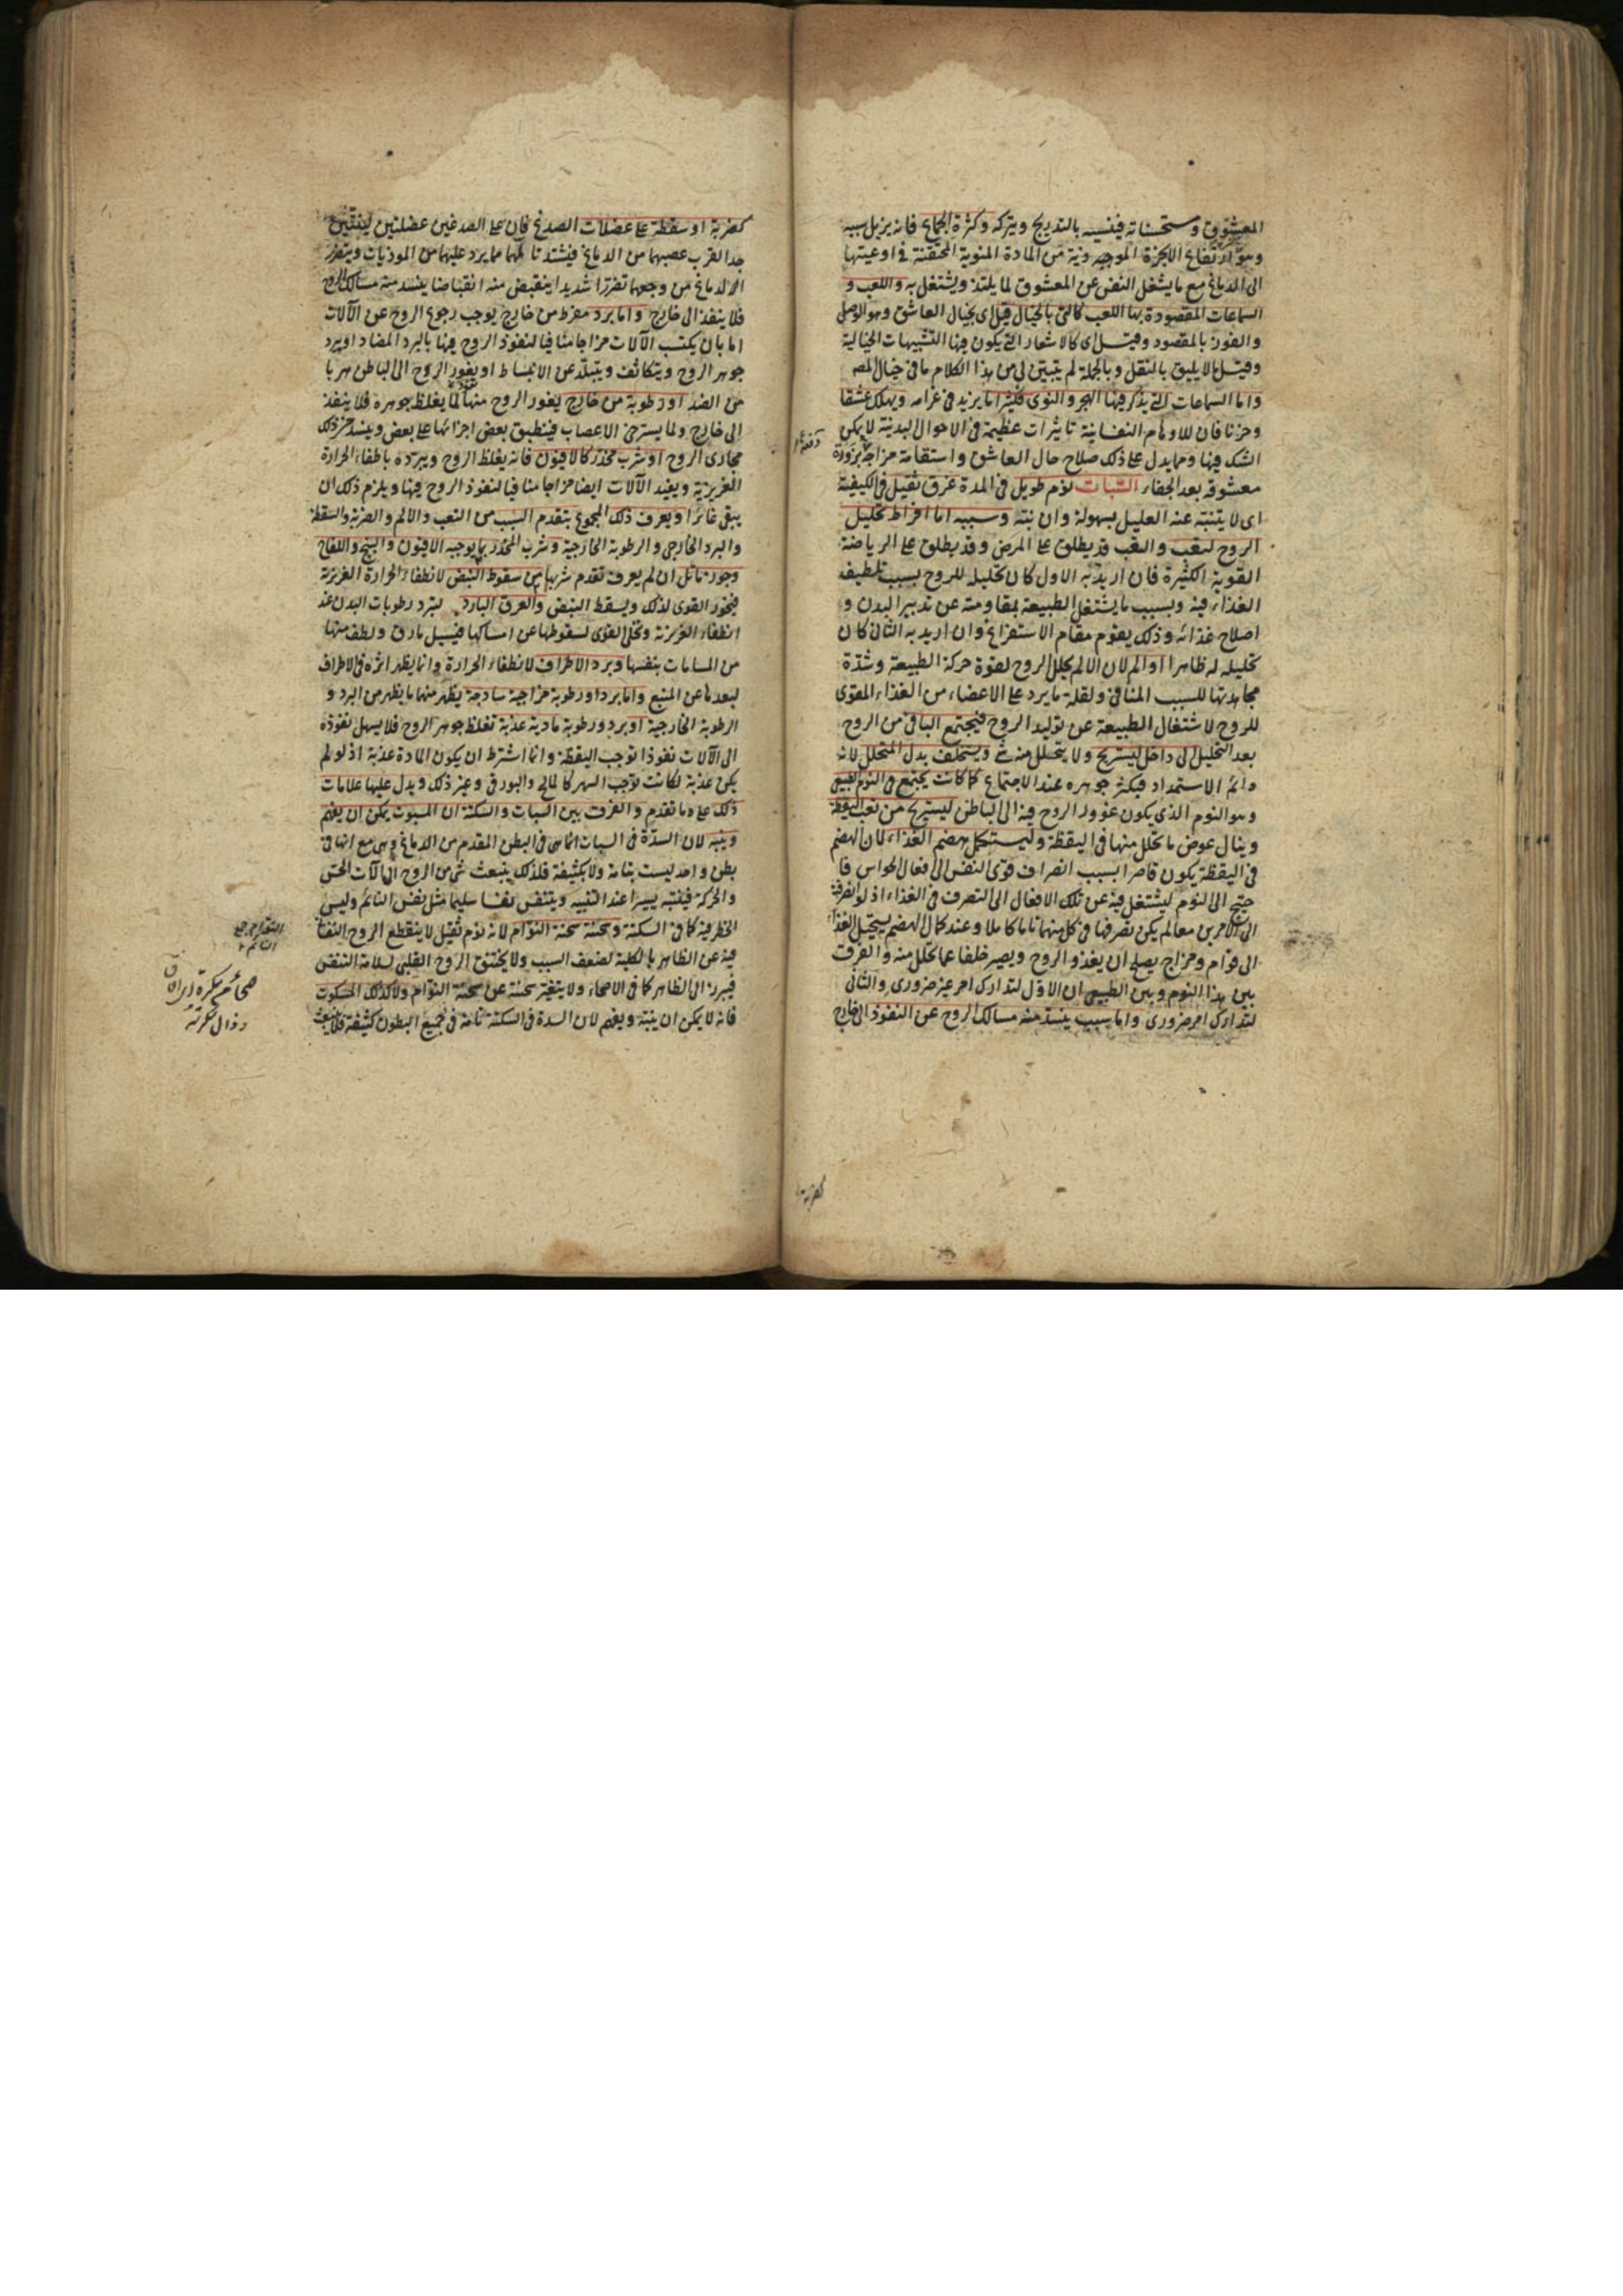 المعشوق ومستحسناته فينسيه بالتدريج ويتركه وكثرة الجماع فانه يزيل سببه
وهو ارتفاع الابخرة الموجبة من المادة المنوية المحتقنة في اوعيتها
الى الدماغ مع ما يشغل النفس عن المعشوق لما يلتذ ويشتغل به واللعب و
السماعات المقصودة بها اللعب كالتى بالخيال قيل اى بخيال العاشق وهو الوصل
والفوز بالمقصود وقيل اى كالاشعار التى يكون فيها التشبيهات الخيالية
وقيل ما لا يليق بالنقل وبالجملة لم يتبين لى من هذا الكلام ما فى خيال المص
واما السماعات التى يذكر فيها الهجر والنوى فكثيرا ما يزيد فى غرامه ويهلك عشقا
وحزنا فان للاوهام النفسانية تاثيرات عظيمة فى الاحوال البدنية لا يمكن
الشك فيها ومما يدل على ذلك صلاح حال العاشق واستقامة مزاجه بزورة
معشوقه بعد الجفاء السبات نوم طويل فى المدة غرق ثقيل فى الكيفية
اى لا يتنبه عنه العليل بسهولة وان نبه وسببه اما افراط تحليل
الروح لتعب والتعب قد يطلق على المرض وقد يطلق على الرياضة
القوية الكثيرة فان اريد به الاول كان تحليله للروح بسبب تلطيف
الغذاء فيه وبسبب ما يشتغل الطبيعة بمقاومته عن تدبير البدن و
اصلاح غذائه وذلك يقوم مقام الاستفراغ وان اريد به الثانى كان
تحليله له ظاهرا او الم لان الالم يحلل الروح لقوة حركة الطبيعة وشدة
مجاهدتها للسبب المنافى ولقلة ما يرد على الاعضاء من الغذاء المقوى
للروح لاشتغال الطبيعة عن توليد الروح فيجتمع الباقى من الروح
بعد التحليل الى داخل ليستريح ولا يتحلل منه شئ ويستخلف بدل المتحلل لانه
دائم الاستمداد فيكثر جوهره عند الاجتماع كما كانت يجتمع فى النوم الطبيعى
وهو النوم الذى يكون غوور الروح فيه الى الباطن ليستريح من تعب اليقظة
وينال عوض ما تحلل منها فى اليقظة وليستكمل هضم الغذاء لان الهضم
فى اليقظة يكون قاصرا بسبب انصراف قوى النفس الى افعال الحواس فا
حتيج الى النوم ليشتغل فيه عن تلك الافعال الى التصرف فى الغذاء اذ لو انصرفت
الى الامرين معا لم يكن تصرفها فى كل منهما تاما كاملا وعند كمال الهضم يستحيل الغذاء
الى قوام ومزاج يصلح ان يغذو الروح ويصير خلفا عما تحلل منه والفرق
بين هذا النوم وبين الطبيعى ان الاول لتدارك امر غير ضرورى والثانى
لتدارك امر ضرورى واما سبب ينسد منه مسالك الروح عن النفوذ الى خارج
كضربة
كضربة او سقطة على عضلات الصدغ فان على الصدغين عضلتين
جدا لقرب عصبهما من الدماغ فيشتد تالمهما مما يرد عليهما من الموذيات ويتضرر
الدماغ من وجعهما تضررا شديدا ينقبض منه انقباضا ينسد منه مسالك الروح
فلا ينفذ الى خارج واما برد مفرط من خارج يوجب رجوع الروح عن الآلات
اما بان يكتسب الآلات مزاجا منافيا لنفوذ الروح فيها بالبرد المضاد او يبرد
جوهر الروح ويتكاثف ويتبلد عن الانبساط او يغور الروح الى الباطن هربا
من الضد او رطوبة من خارج يغور الروح منها لما يغلظ جوهره فلا ينفذ
الى خارج ولما يسترخى الاعصاب فينطبق بعض اجزائها على بعض وينسد من ذلك
مجارى الروح او شرب مخدر كالافيون فانه يغلظ الروح ويبرده باطفاء الحرارة
الغريزية ويفيد الآلات ايضا مزاجا منافيا لنفوذ الروح فيها ويلزم ذلك ان
يبقى غائرا ويعرف ذلك المجموع بتقدم السبب من التعب والالم والضربة والسقطة
والبرد الخارجى والرطوبة الخارجية وشرب المخدر بما يوجبه الافيون والبنج واللفاح
وجوز ماثل ان لم يعرف تقدم شربها من سقوط النبض لانطفاء الحرارة الغريزية
فيخور القوى لذلك ويسقط النبض والعرق البارد لتبرد رطوبات البدن عند
انطفاء الغريزية وتخلى القوى لسقوطها عن امساكها فيسيل ما رق ولطف منها
من المسامات بنفسها وبرد الاطراف لانطفاء الحرارة وانما يظهر اثره فى الاطراف
لبعدها عن المنبع واما برد او رطوبة مزاجية ساذجة يظهر منهما ما يظهر من البرد و
الرطوبة الخارجية او برد ورطوبة مادية عذبة تغلظ جوهر الروح فلا يسهل نفوذه
الى الآلات نفوذا توجب اليقظة وانما اشترط ان يكون المادة عذبة اذ لو لم
يكن عذبة لكانت توجب السهر كالمالح والبورقى وغير ذلك ويدل عليها علامات
ذلك على ما تقدم والفرق بين السبات والسكتة ان المسبوت يمكن ان يفهم
وينبه لان السدة فى السبات انما هى فى البطن المقدم من الدماغ وهى مع انها فى
بطن واحد ليست بتامة ولا بكثيفة فلذلك ينبعث شئ من الروح الى آلات الحس
والحركة فيتنبه يسيرا عند التنبيه ويتنفس نفسا سليما مثل نفس النائم وليس
الخطر فيه كما فى السكتة وسحنته سحنة النوام لانه نوم ثقيل لا ينقطع الروح النفسانى
فيه عن الظاهر بالكلية لضعف السبب ولا يختنق الروح القلبى لسلامة التنفس
فيبرز الى الظاهر كما فى الاصحاء ولا يتغير سحنته عن سحنة النوام ولا كذلك المسكوت
فانه لا يمكن ان ينبه ويفهم لان السدة فى السكتة تامة فى جميع البطون كثيفة فلا ينبعث
النوام جمع
النائم